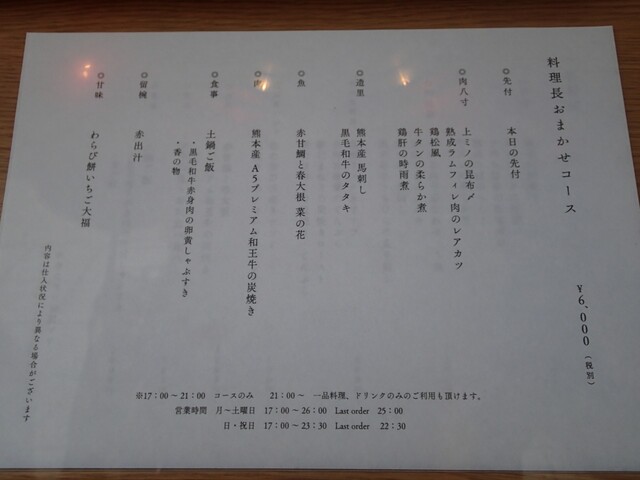 料理長おまかせコース
¥6,000（税別）
◎先付
本日の先付
◎肉八寸
上ミノの昆布〆
熟成ラムフィレ肉のレアカツ
鶏松風
牛タンの柔らか煮
鶏肝の時雨煮
◎造里
熊本産 馬刺し
黒毛和牛のタタキ
◎魚
赤甘鯛と春大根 菜の花
◎肉
熊本産 A5プレミアム和王牛の炭焼き
◎食事
土鍋ご飯
・黒毛和牛赤身肉の卵黄しゃぶすき
・香の物
◎留椀
赤出汁
◎甘味
わらび餅いちご大福
内容は仕入状況により異なる場合がございます
※17：00～21：00 コースのみ 21：00～ 一品料理、ドリンクのみのご利用も頂けます。
営業時間 月～土曜日 17：00～26：00 Last order 25：00
日・祝日 17：00～23：30 Last order 22：30